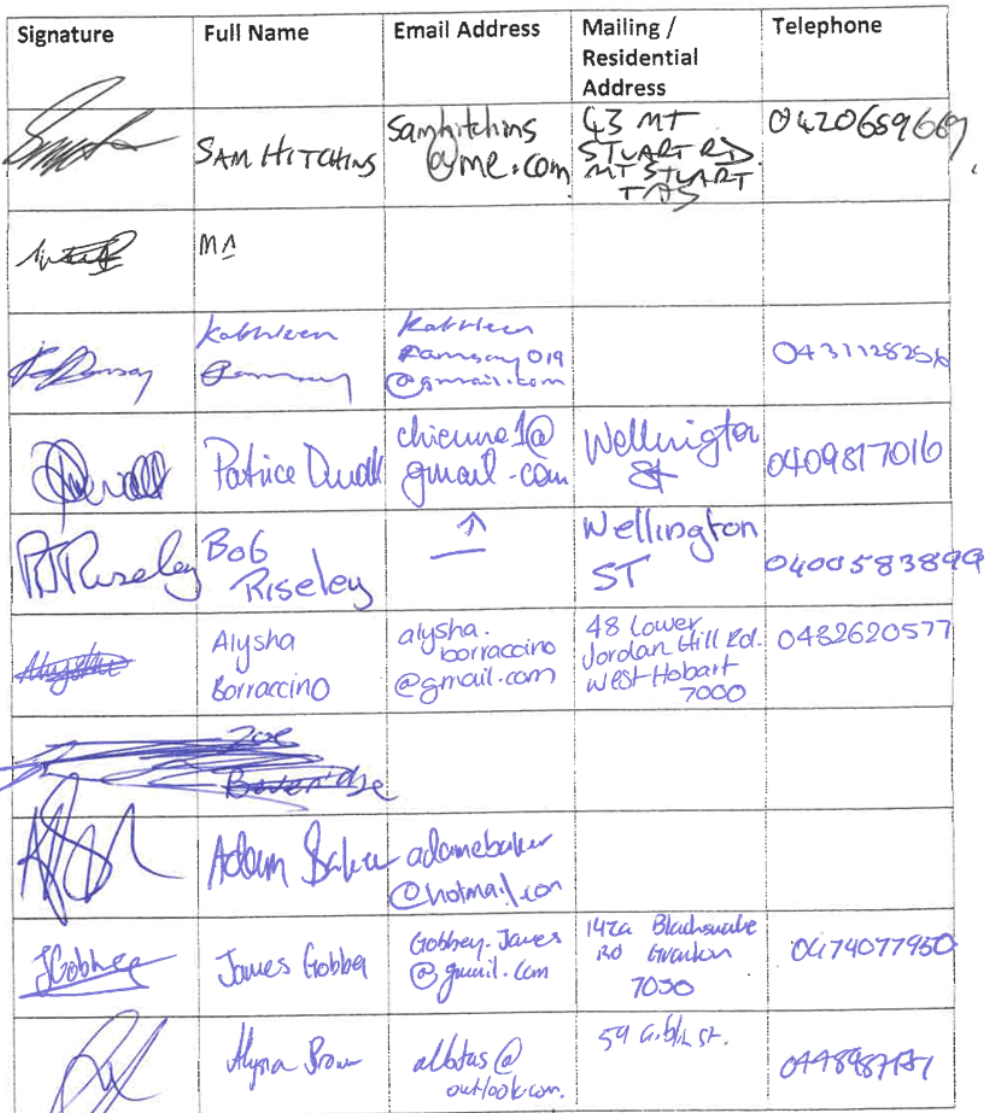 Signature Full Name Email Address Mailing / Residential Address Telephone
SAM HITCHINS samhitchins @me.com 43 MT STUART RD. MT STUART TAS 0420659669
MA
Kathleen Ramsay Kathleen Ramsay019 @gmail.com 0431128256
Patrice Duall chienne1@ gmail.com Wellington St 0409817016
RJRiseley Bob Riseley ↑ Wellington ST 0400583899
Alysha Borraccino alysha. borraccino @gmail.com 48 Lower Jordan Hill Rd. West Hobart 7000 0432620577
Zoe Beveridge
Adam Baker adamebaker @hotmail.com
JGobbey James Gobbey Gobbey.James @gmail.com 142a RD Granton 7030 0474077950
Brown @ outlook.com. 59 St.